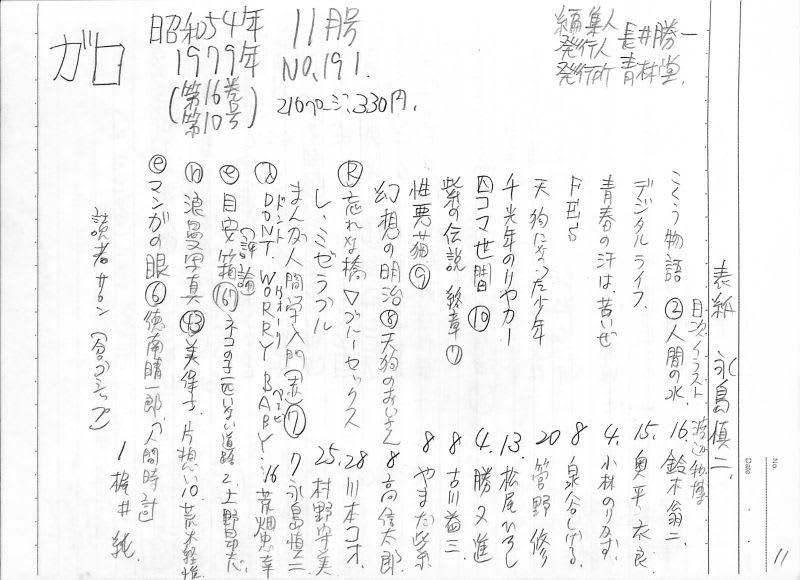 ガロ
昭和54年 11月号
1979年 NO.191.
(第16巻
第10号)
210ページ.330円.
編集人
発行人 長井勝一
発行所 青林堂.
表紙 永島慎二.
目次イラスト 渡辺和博
こくう物語 ②人間の水 16. 鈴木翁二
デジタルライフ. 15. 奥平衣良
青春の汗は、苦いぜ 4. 小林のりかず.
FES 8 泉谷しげる.
天狗になった少年 20 菅野 修
千光年のリヤカー 13. 松尾ひろし
四コマ世間 ⑩ 4. 勝又進
紫の伝説 終章 ⑦ 8 古川益三
性悪猫 ⑨ 8 やまだ紫
幻想の明治 ⑧ 天狗のおいさん 8 高信太郎
Ⓡ 忘れな橋 ▽ブルーセックス 28 川本コオ
し、ミゼラブル 25. 村野守美
まんが人間学入門(赤)⑦ 7 永島慎二
DON'T WORRY BABY 16 荒畑忠幸
ドント ウオーリー ベエビ
(評論)
ⓔ 目安箱 (167) ネコの子一匹いない道路 2. 上野昻志.
ⓗ 浪曼写真 ㊸ 美保子、片想い 10. 荒木経惟
ⓔ マンガの眼 ⑥ 徳南晴一郎、「人間時計」
1 梶井 純
読者サロン (合ゴシップ)
No.
Date
11